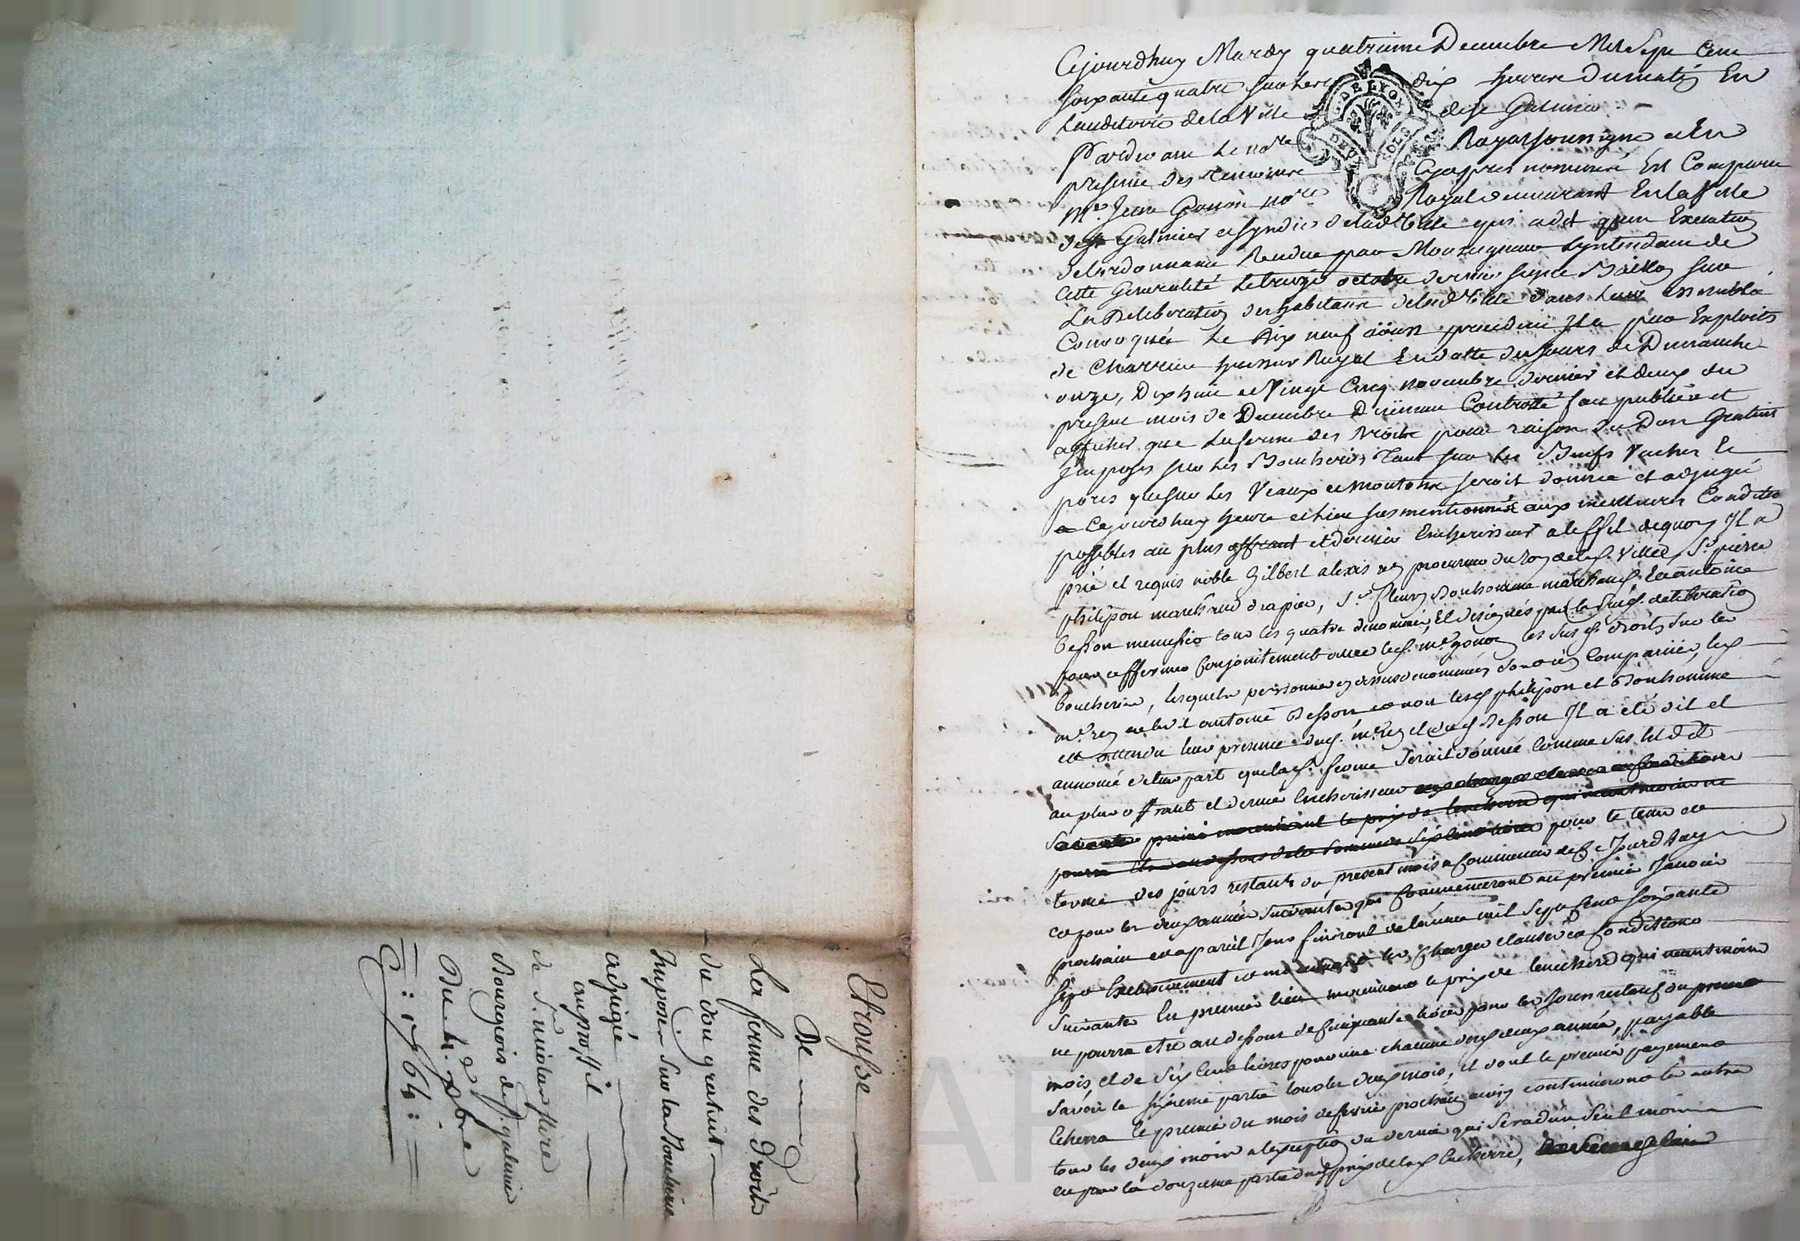 Cejourdhuy Mardy quatrieme Decembre Mil Sept Cent
soixante quatre sur les dix heures du matin En
Lauditoire de la Ville de St Galmier
Pardevant Le nore Royal soussigné et En
presence des temoins Cyapres nommés Est Comparu
Me Jean Gonon nore Royal demeurant En la Ville
de St Galmier et syndic de lad. Ville qui a dit qu'en Execution
de Lordonnance Rendue par Monseigneur Lyntendant de
Cette Generalité Le treize octobre dernier signée Baillon sur
La Deliberation des habitans de lad. Ville dans Leur assemblée
Convoquée Le Dix neuf aoust precedent Il a par Exploits
de Charrein huissier Royal En datte des jours de Dimanche
onze, Dix huit et Vingt Cinq novembre dernier et deux du
present mois de Decembre Duëment Controllé fait publier et
afficher que La ferme des Droits pour raison du Don Gratuit
Imposés sur les Boucheries Tant sur les Bœufs Vaches Et
porcs que sur les Veaux et Moutons seroit donnée et adjugée
a Cejourdhuy heure et lieu susmentionnés aux meilleures Conditions
possibles au plus offrant et dernier Encherisseur a leffet de quoy Il a
prié et requis noble Gilbert alexis rey procureur du roy de lad. Ville, Sr pierre
philipon marchand drapier, Sr fleury Bonhomme marchand, Et antoine
besson menusier tous les quatre denommés Et designés par la susd. deliberation
pour affermer Conjointement avec led. me gonon les susd. droits sur les
boucheries, lesquelles personnes cy dessus denommées
me rey et led. antoine Besson et non lesd. philipon et Bonhomme
et attendu leur presence dud. me rey et dud. Besson Il a été dit et
annoncé de leur part que lad. ferme seroit donnée Comme sus est dit
au plus offrant et dernier Encherisseur aux charges clauses et conditions
suivantes
pour le tems et
terme des jours restants du present mois a Commencer de Ce Jourdhuy
et pour les deux années suivantes qui Commenceront au premier Janvier
prochain et a pareil Jour finiront de lannée mil Sept Cent soixante
sept les charges clauses et Conditions
suivantes En premier lieu moyennant le prix de lenchere qui neantmoins
ne pourra etre au dessous de Cinquante livres pour les Jours restants du present
mois, et de six Cent livres pour une chacune desd. deux années, payable
savoir la sixieme partie tous les deux mois, et dont le premier payement
Echerra le premier du mois de fevrier prochain ainsy continueront les autres
tous les deux mois a lexception du dernier qui sera d'un seul mois
et pour la douzieme partie dud. prix de lad. Enchere,
Etrousse
De
La ferme des Droits
du don gratuit
Imposés sur la Boucherie
adjugée
au proffit
de Sr nicolas flire
Bourgeois de St galmier
Du 4e Xbre
1764